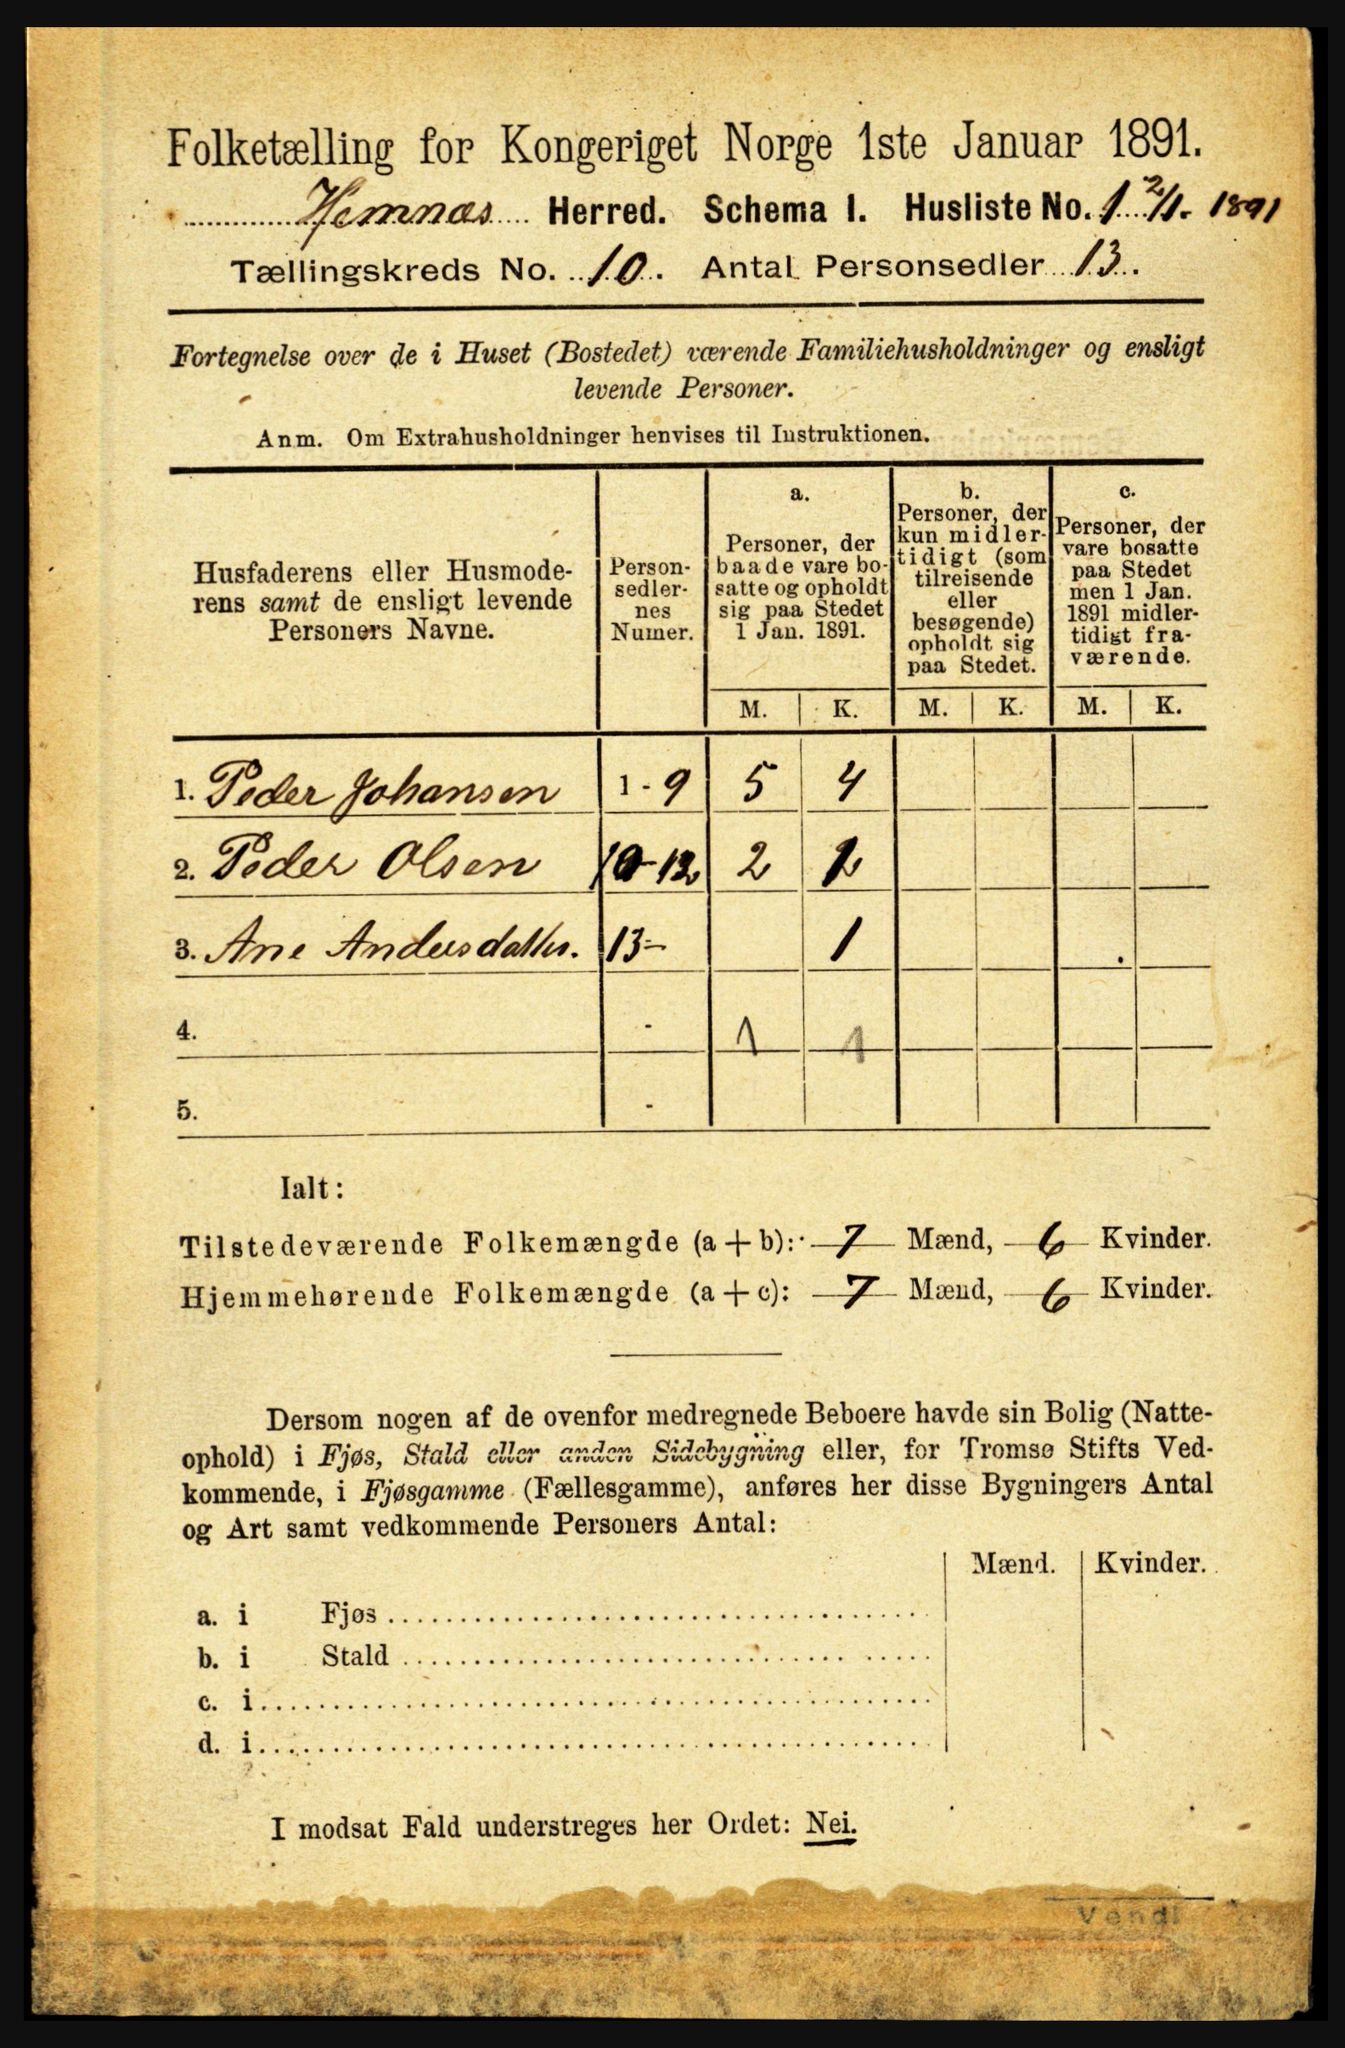 Folketælling for Kongeriget Norge 1ste Januar 1891.
Hemnæs Herred. Schema I. Husliste No. 1 2/1. 1891
Tællingskreds No. 10. Antal Personsedler 13.
Fortegnelse over de i Huset (Bostedet) værende Familiehusholdninger og ensligt
levende Personer.
Anm. Om Extrahusholdninger henvises til Instruktionen.
Husfaderens eller Husmode-
rens samt de ensligt levende
Personers Navne.
Person-
sedler-
nes
Numer.
a.
Personer, der
baade vare bo-
satte og opholdt
sig paa Stedet
1 Jan. 1891.
b.
Personer, der
kun midler-
tidigt (som
tilreisende
eller
besøgende)
opholdt sig
paa Stedet.
c.
Personer, der
vare bosatte
paa Stedet
men 1 Jan.
1891 midler-
tidigt fra-
værende.
M. K. M. K. M. K.
1. Peder Johansen 1 - 9 5 4
2. Peder Olsen 10-12 2 1
3. Ane Andersdatter. 13- 1
4. - 1 1
5. -
Ialt:
Tilstedeværende Folkemængde (a + b): 7 Mænd, 6 Kvinder.
Hjemmehørende Folkemængde (a + c): 7 Mænd, 6 Kvinder.
Dersom nogen af de ovenfor medregnede Beboere havde sin Bolig (Natte-
ophold) i Fjøs, Stald eller anden Sidebygning eller, for Tromsø Stifts Ved-
kommende, i Fjøsgamme (Fællesgamme), anføres her disse Bygningers Antal
og Art samt vedkommende Personers Antal:
Mænd. Kvinder.
a. i Fjøs
b. i Stald
c. i
d. i
I modsat Fald understreges her Ordet: Nei.
Vend!